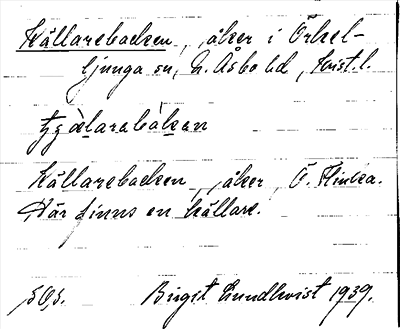 Källarebacken, åker i Örkel-
ljunga sn, N. Åsbo hd, Krist. l.
Källarebacken, åker, Ö. Flinka.
Där finns en källare.
Birgit Lundkvist 1939.